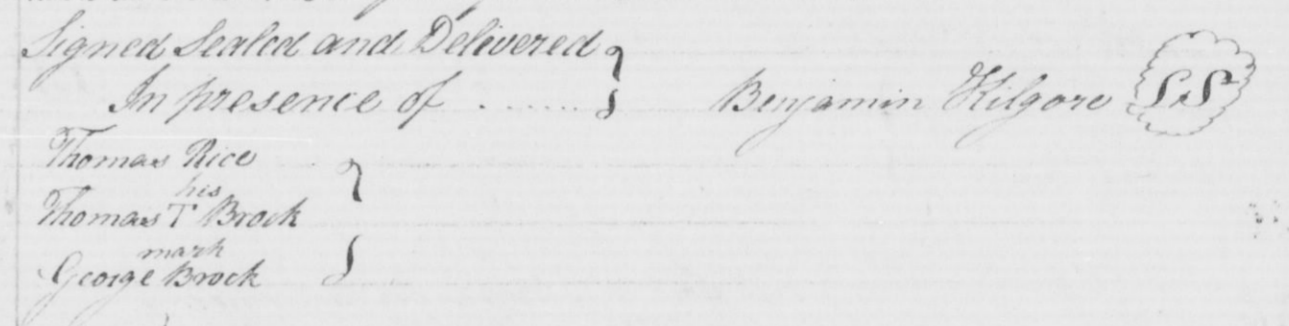 Signed Sealed and Delivered
In presence of ........ Benjamin Kilgore LS
Thomas Rice
his
Thomas T Brock
mark
George Brock